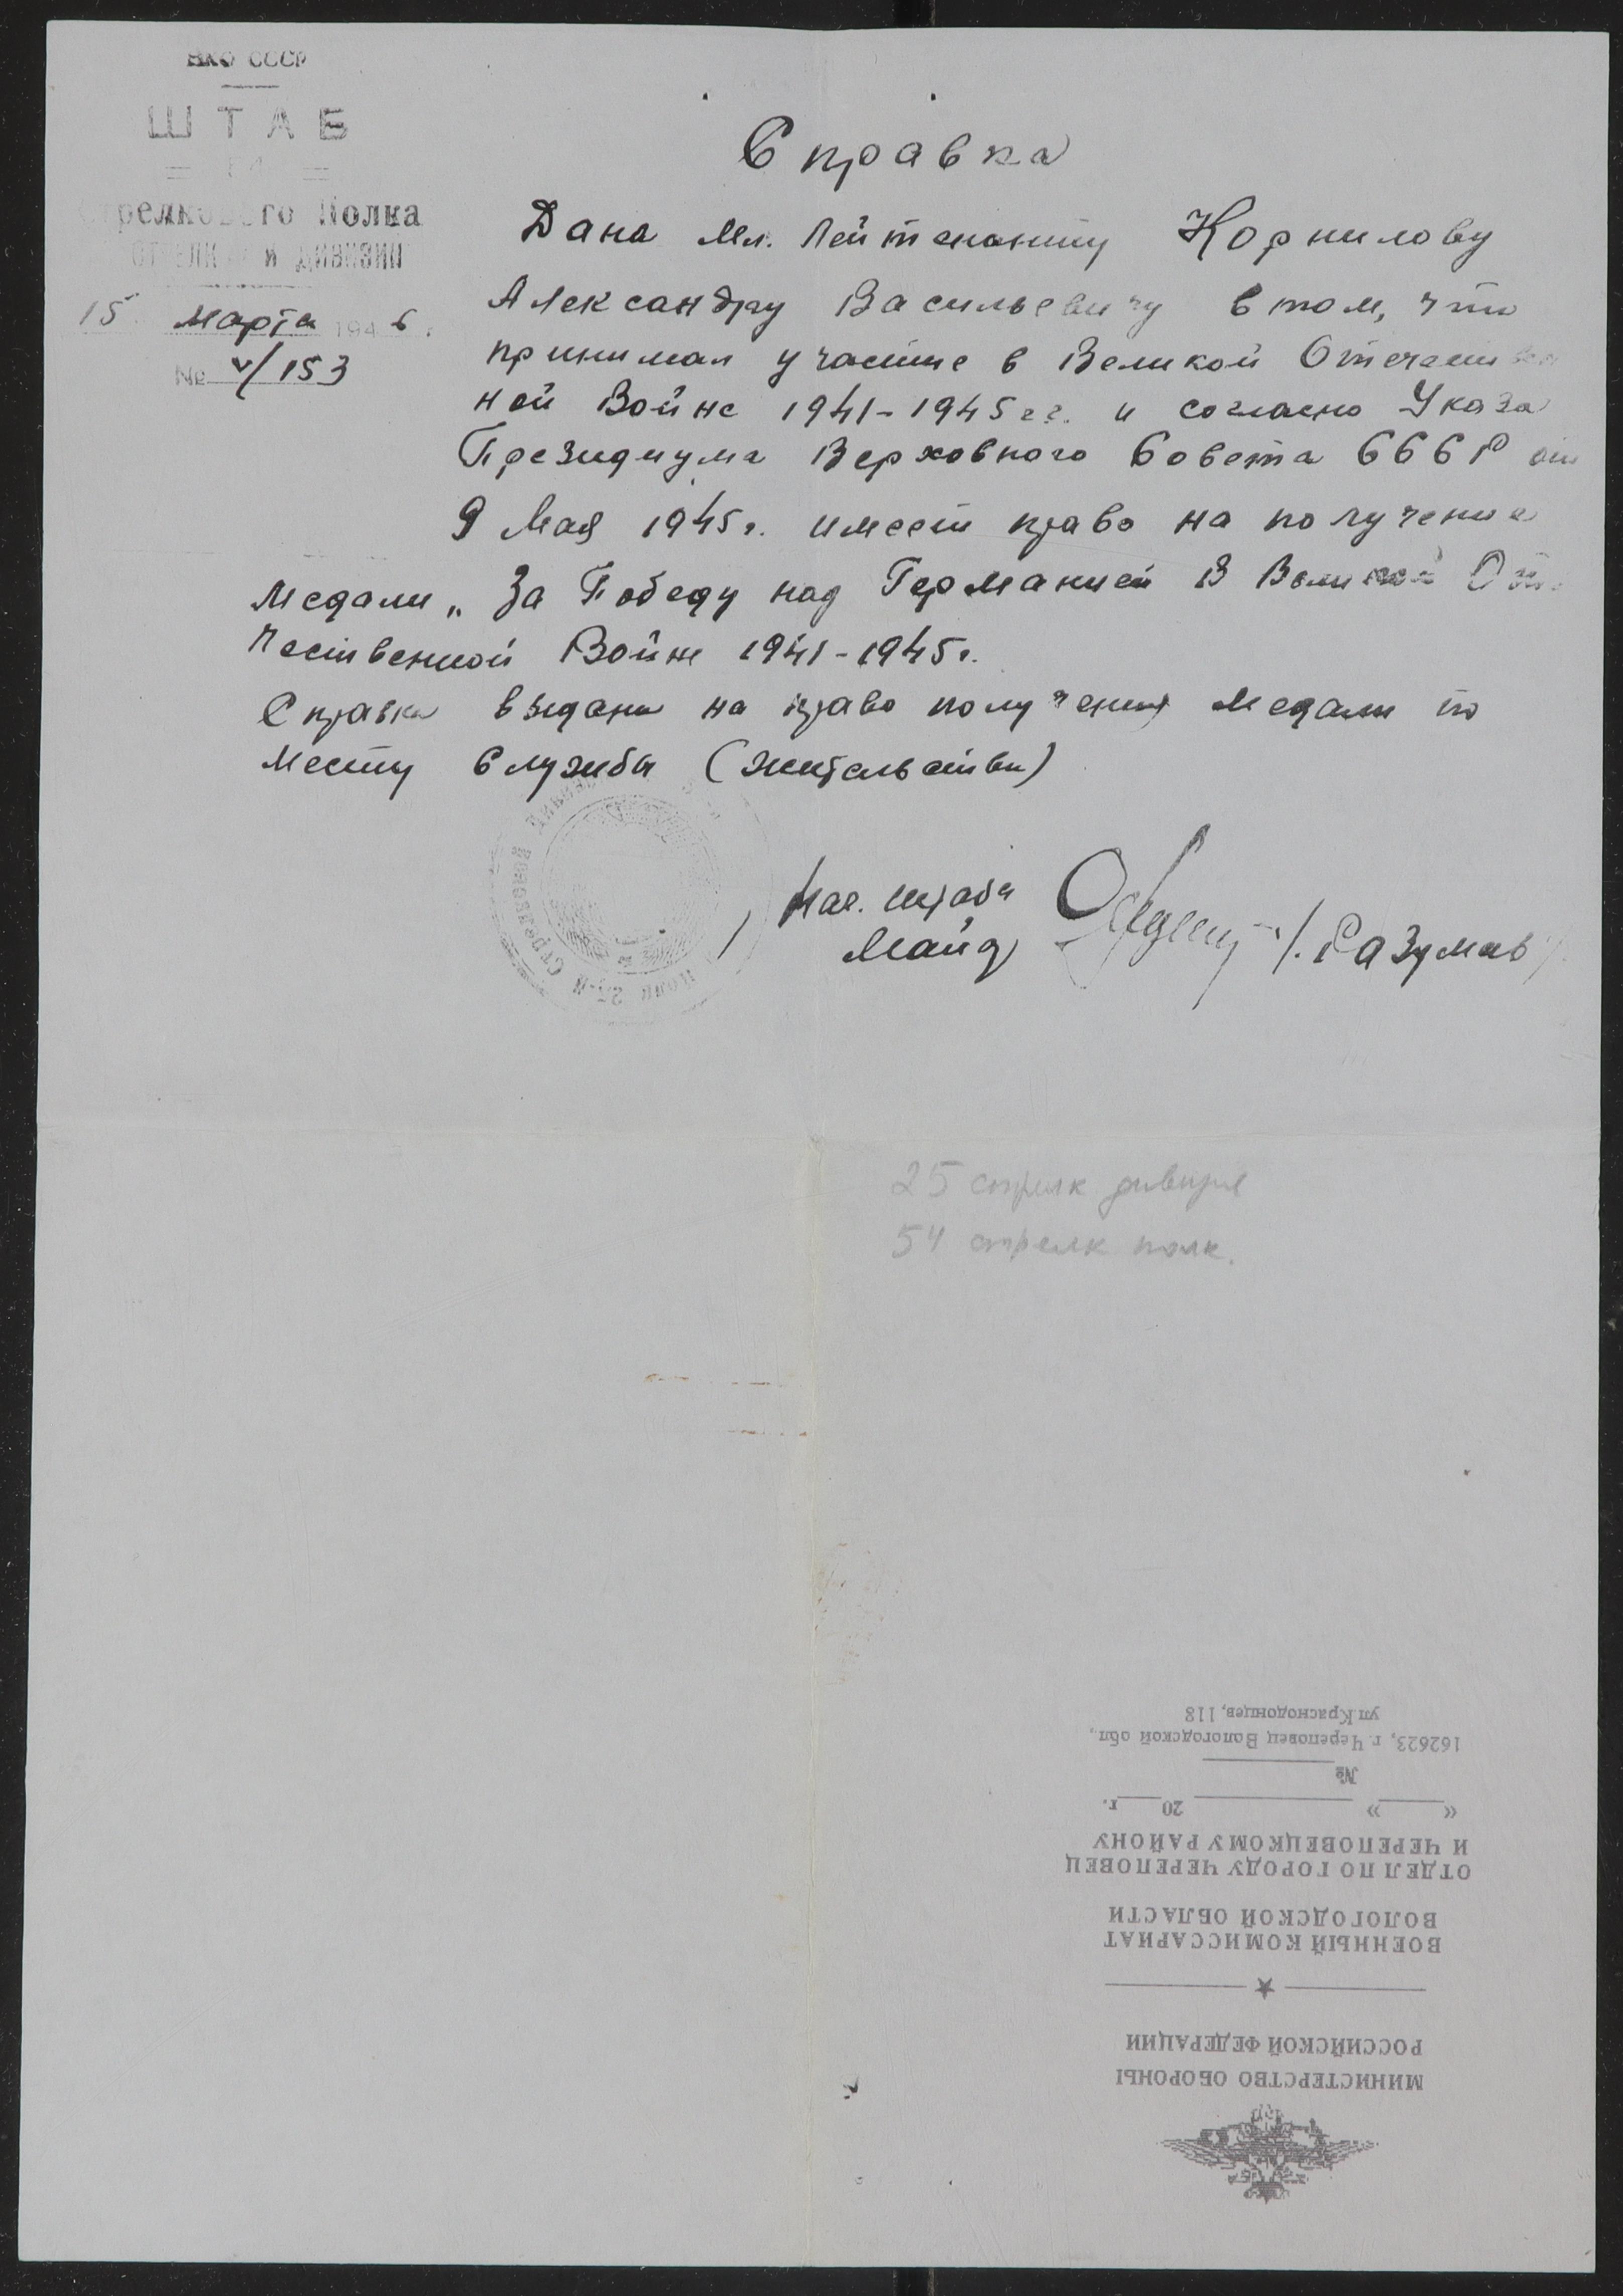 НКО СССР
ШТАБ
Стрелкового Полка
Стрелковой дивизии
15 марта 1946.
№ v/153
Справка
Дана Мл. Лейтенанту Корнилову
Александру Васильевичу в том, что
принимал участие в Великой Отечествен
ной Войне 1941-1945 г.г. и согласно Указа
Президиума Верховного Совета СССР от
9 Мая 1945 г. имеет право на получение
Медали „За Победу над Германией в Великой Оте
чественной Войне 1941-1945 г.
Справка выдана на право получения медали по
месту службы (жительства)
Нач. штаба
Майор /. Разумов/
Стрелковой Дивизии
25 стрелк дивизия
54 стрелк полк.
МИНИСТЕРСТВО ОБОРОНЫ
РОССИЙСКОЙ ФЕДЕРАЦИИ
ВОЕННЫЙ КОМИССАРИАТ
ВОЛОГОДСКОЙ ОБЛАСТИ
ОТДЕЛ ПО ГОРОДУ ЧЕРЕПОВЕЦ
И ЧЕРЕПОВЕЦКОМУ РАЙОНУ
«____» ________ 20___ г.
№ ________
162623, г. Череповец Вологодской обл.,
ул.Краснодонцев, 118